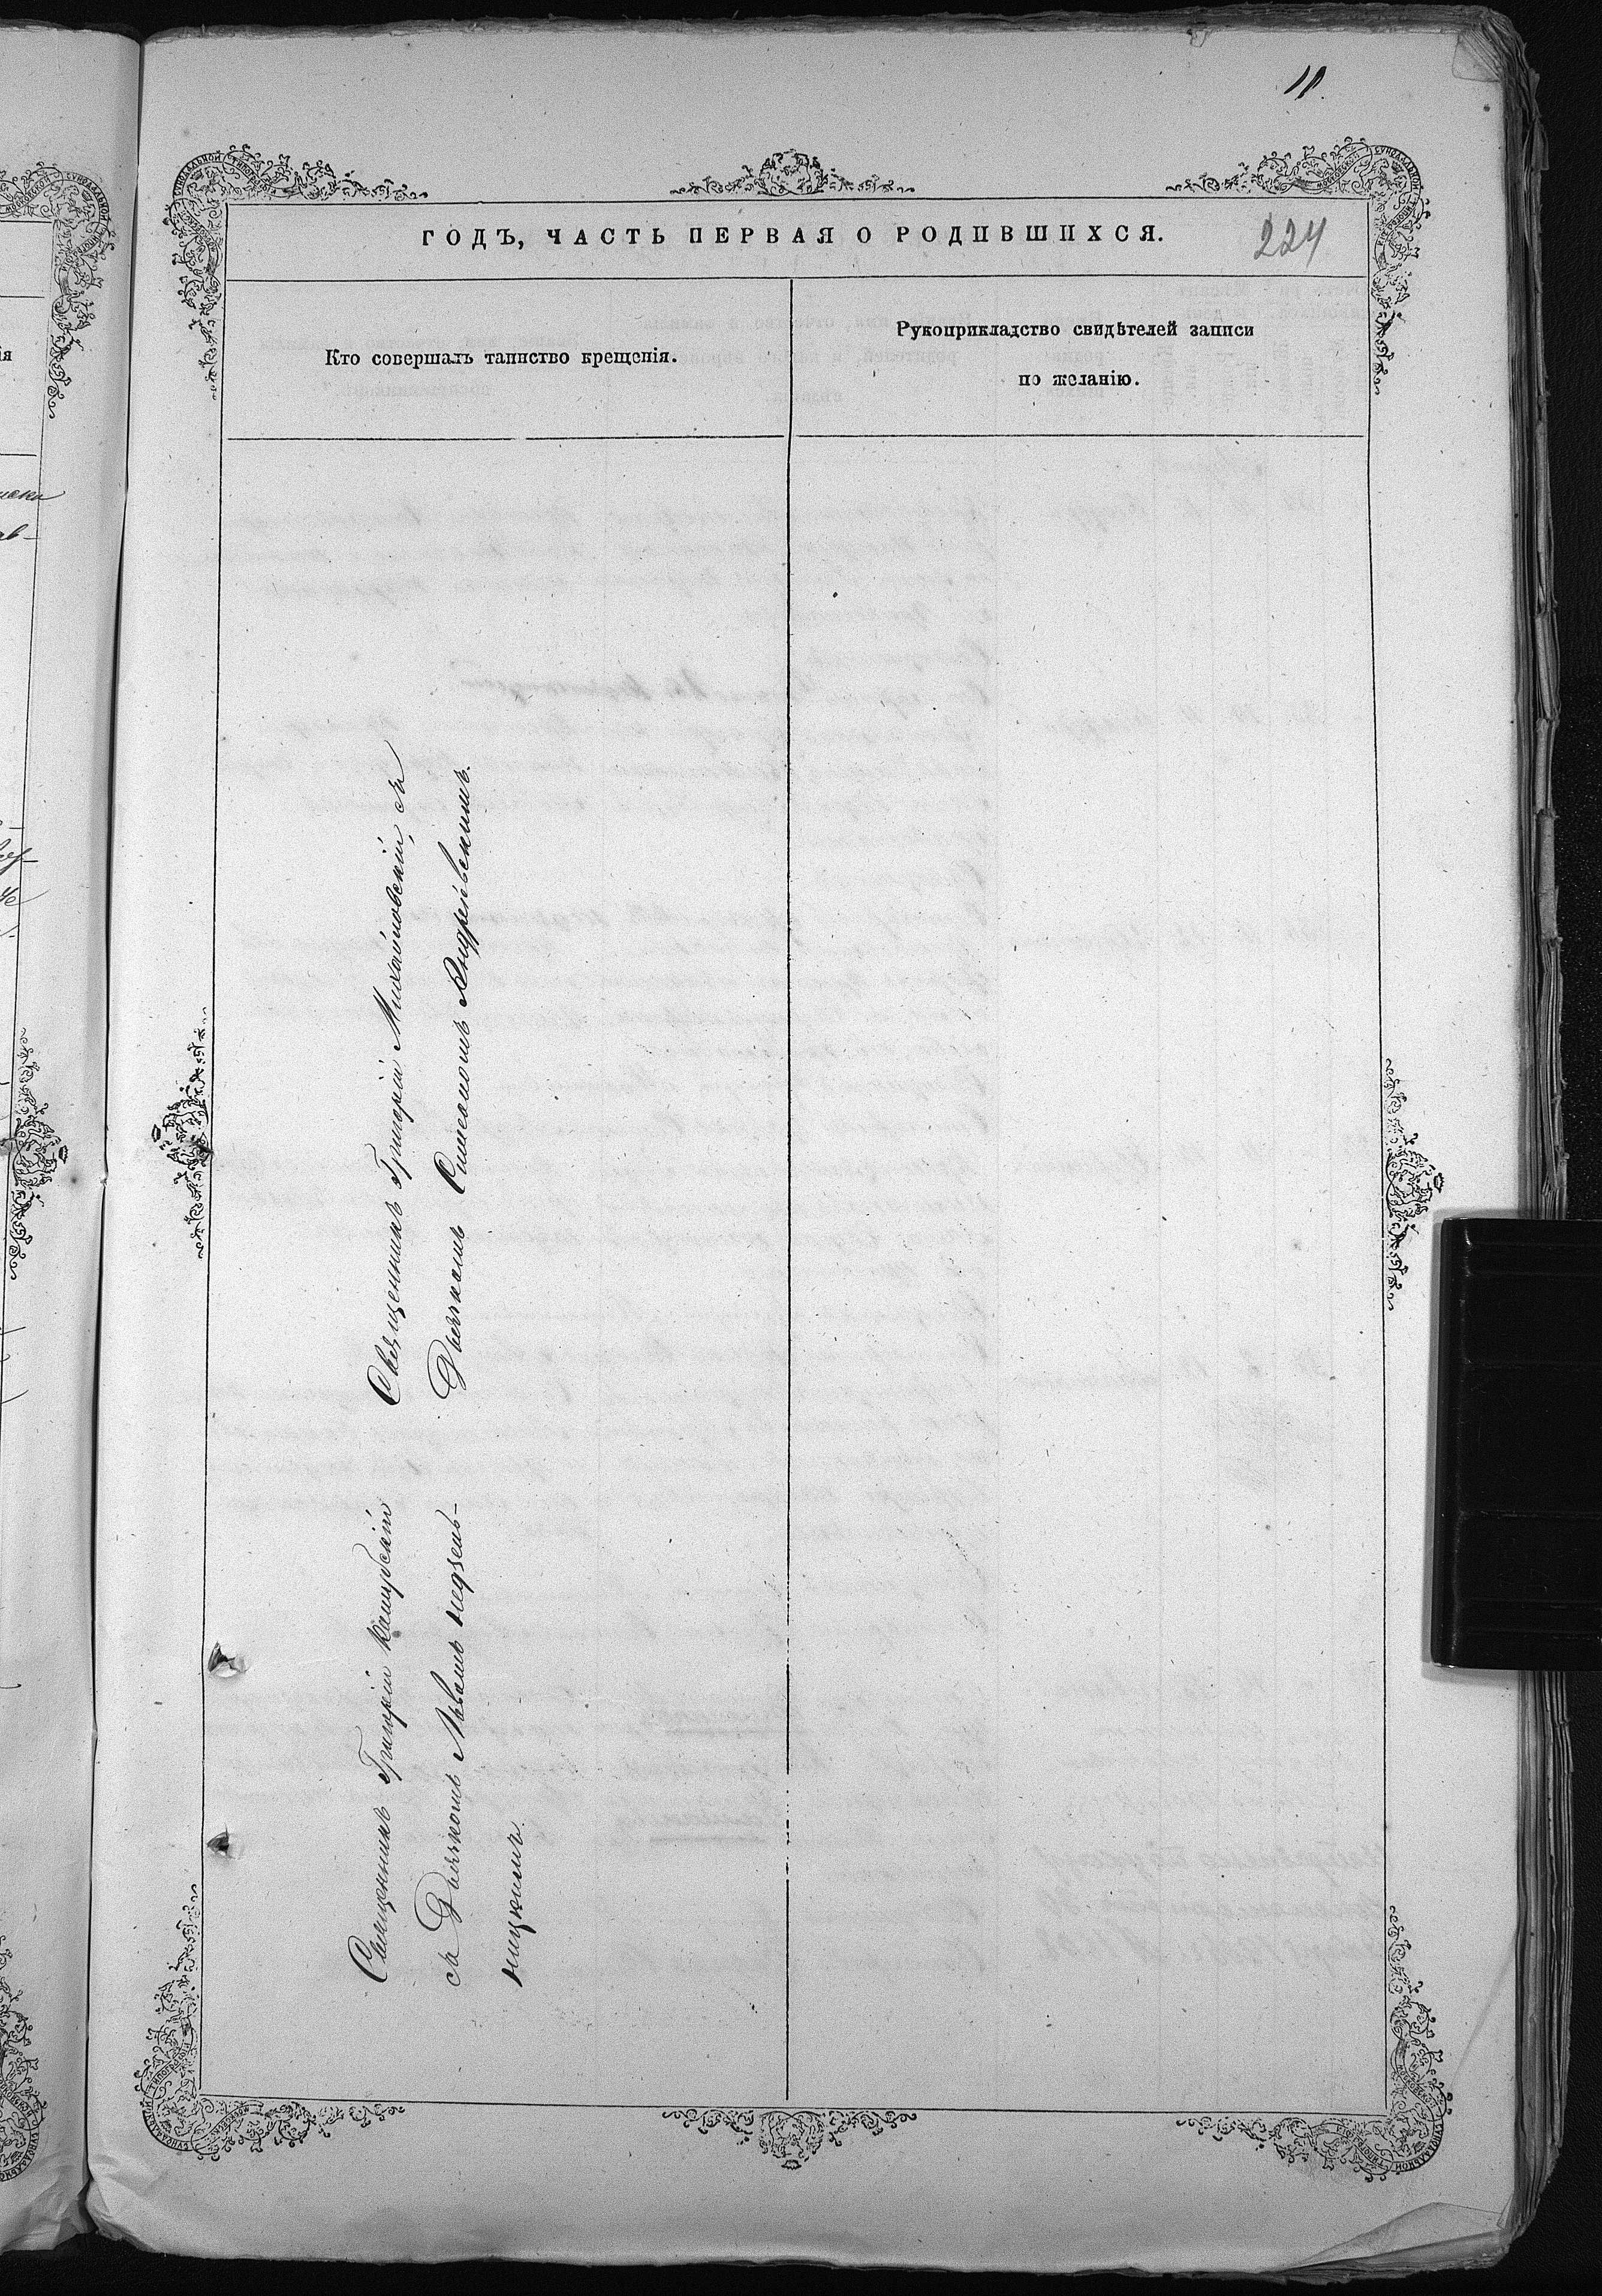 11.
ГОДЪ, ЧАСТЬ ПЕРВАЯ О РОДИВШИХСЯ.
224
Кто совершалъ таинство крещенія.
Рукоприкладство свидѣтелей записи
по желанію.
Священникъ Григорій Михайловскій, съ
Дьячкомъ Симеономъ Андреевскимъ.
Священникъ Григорій
съ Дьячкомъ Львомъ Недзель-
ницкимъ.